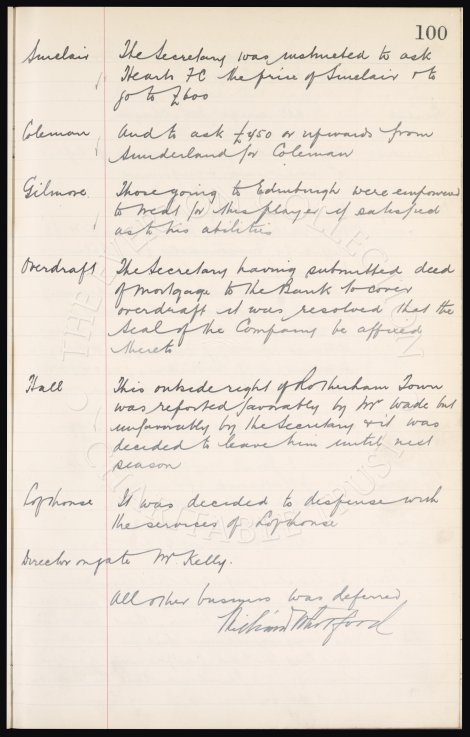 100
Sinclair The Secretary was instructed to ask
Hearts FC the price of Sinclair & to
go to £600
Coleman And to ask £450 or upwards from
Sunderland for Coleman
Gilmore Those going to Edinburgh were empowered
to treat for this player if satisfied
as to his abilities
Overdraft The Secretary having submitted deed
of mortgage to the Bank to cover
overdraft it was resolved that the
Seal of the Company be affixed
thereto
Hall This outside right of Rotherham Town
was reported favorably by Mr Wade but
unfavorably by the Secretary & it was
decided to leave him until next
season
Lofthouse It was decided to dispense with
the services of Lofthouse
Director on gate Mr Kelly.
All other business was deferred
THE EVERTON COLLECTION
CHARITABLE TRUST